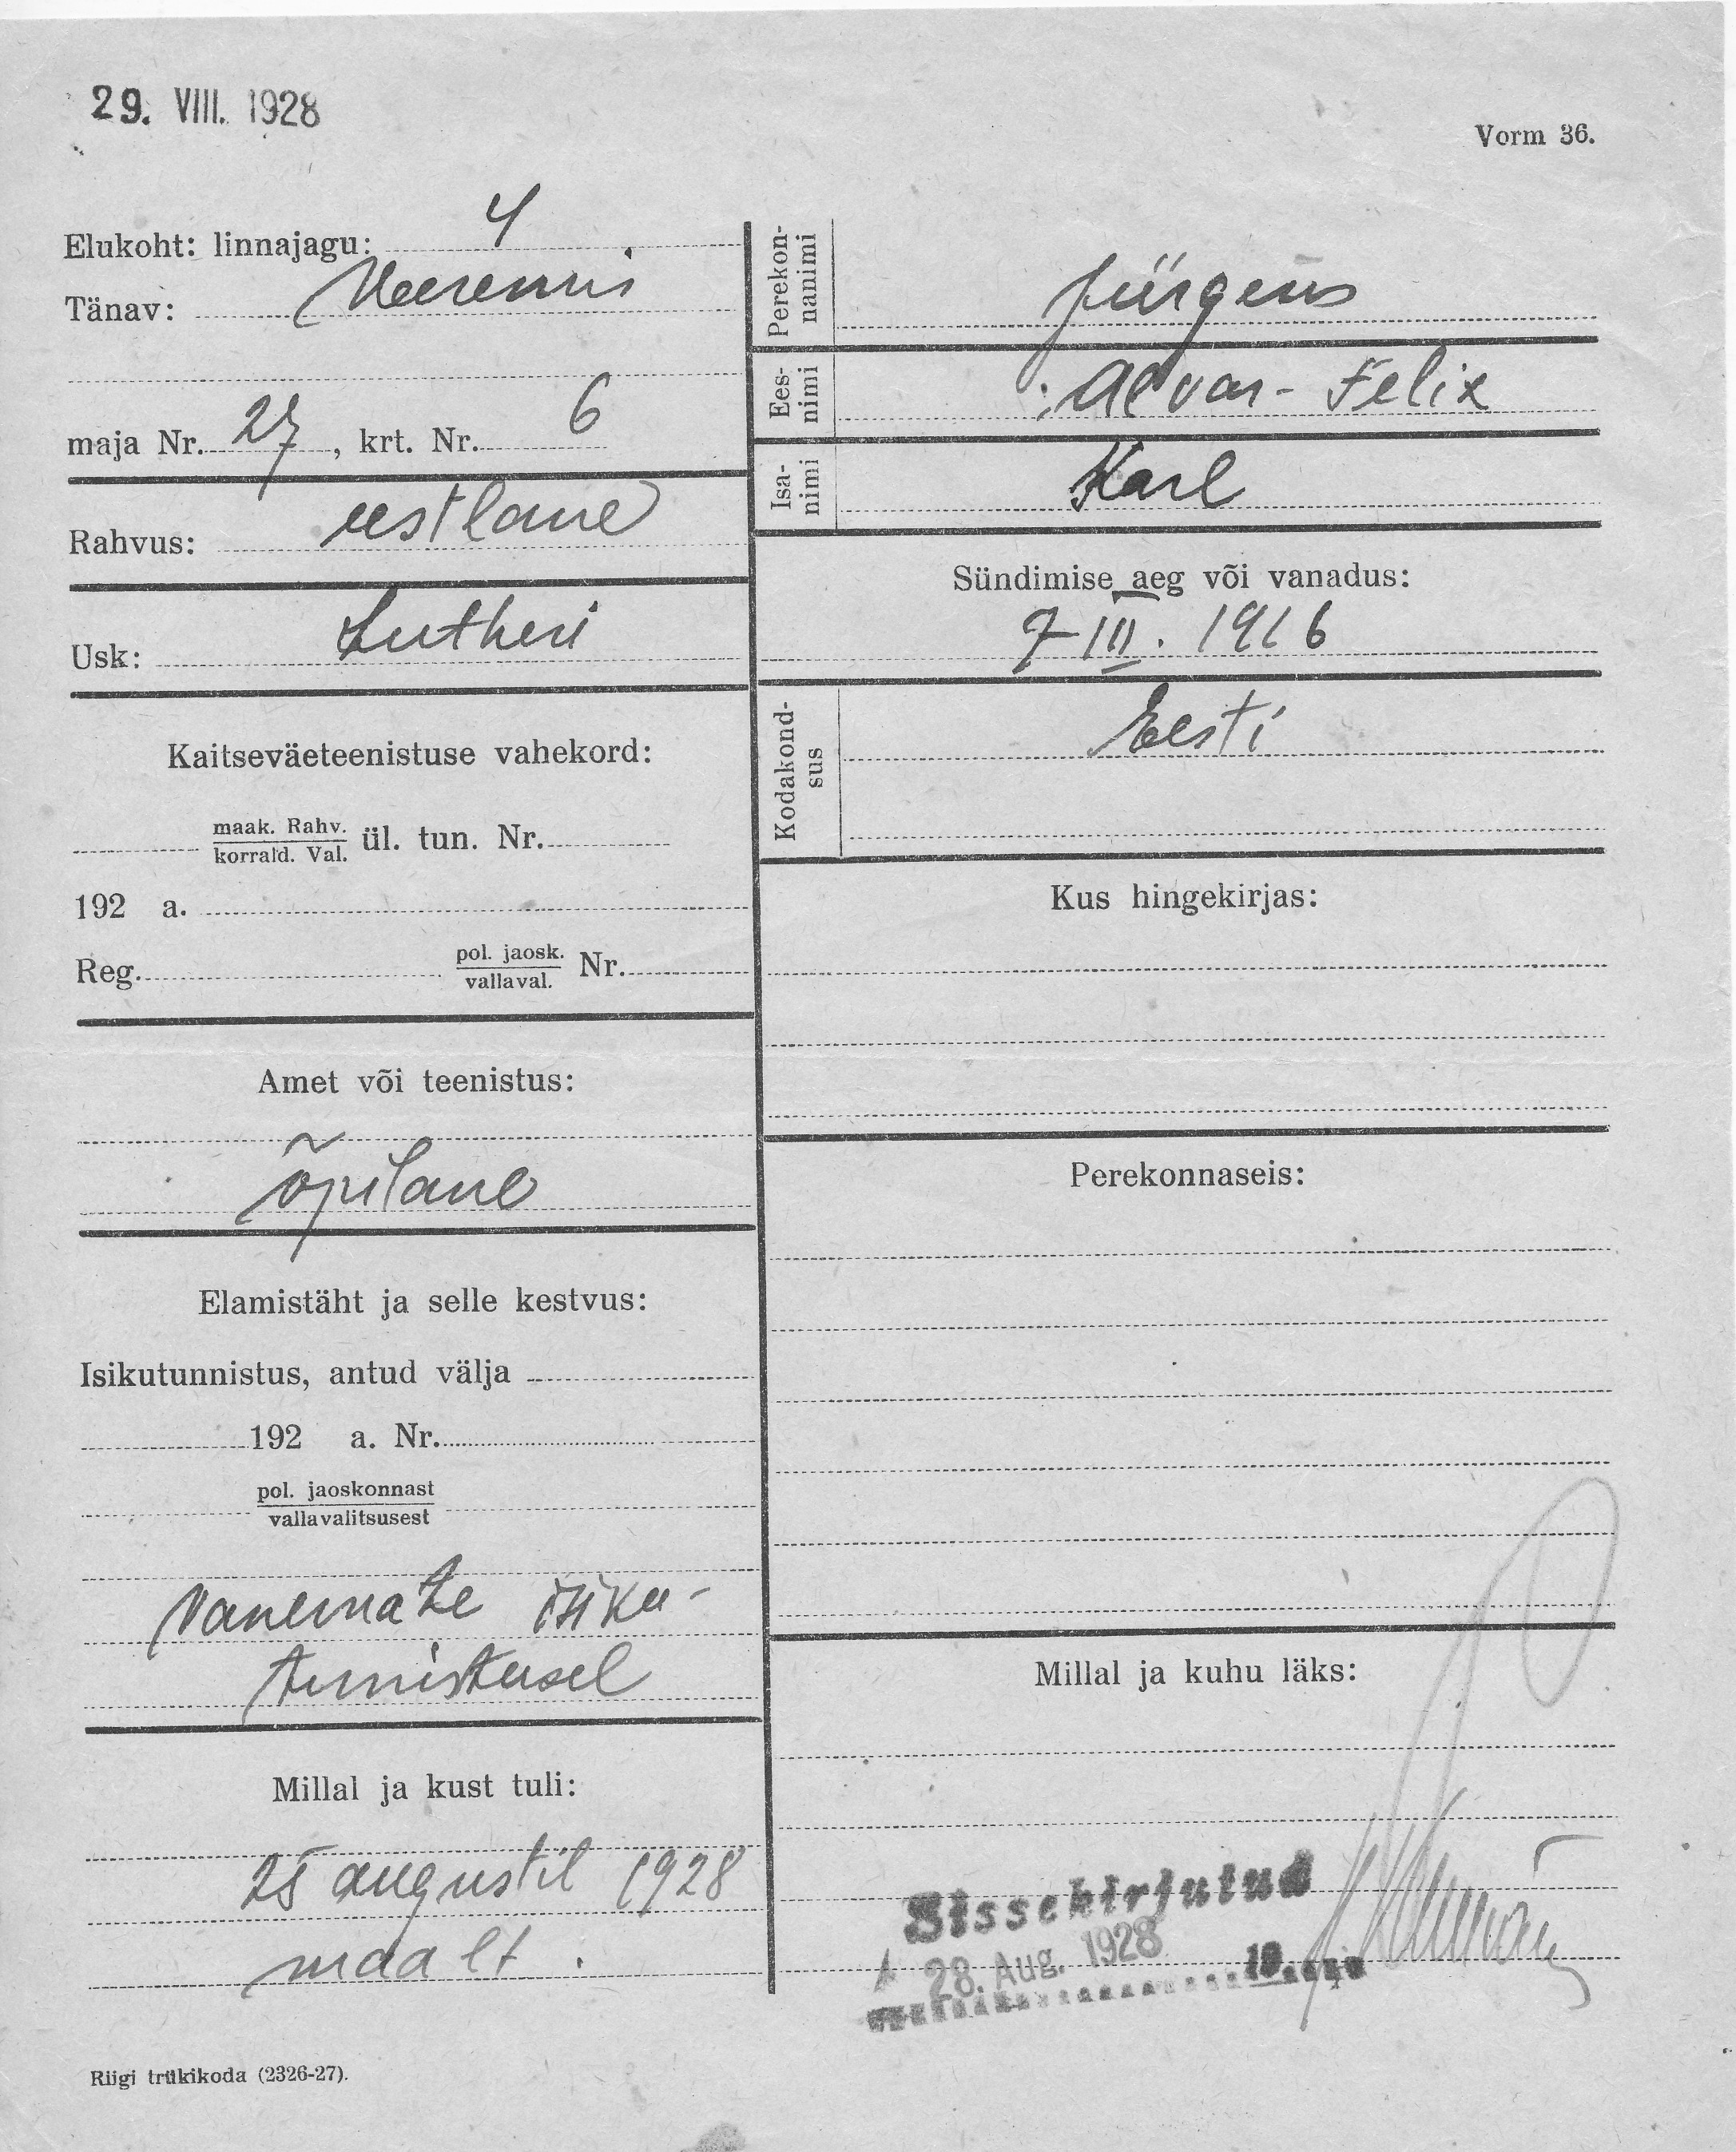 29. VIII. 1928
Vorm 36.
Elukoht: linnajagu: 4
Tänav: Veerenni
maja Nr. 27, krt. Nr. 6
Rahvus: eestlane
Usk: Lutheri
Kaitseväeteenistuse vahekord:
maak. Rahv.
korrald. Val. ül. tun. Nr.
192 a.
Reg. pol. jaosk.
vallaval. Nr.
Amet või teenistus:
õpilane
Elamistäht ja selle kestvus:
Isikutunnistus, antud välja
192 a. Nr.
pol. jaoskonnast
vallavalitsusest
vanemate isiku-
tunnistusel
Millal ja kust tuli:
25 augustil 1928
maalt.
Perekon-
nanimi Jürgens
Ees-
nimi Felix
Isa-
nimi Karl
Sündimise aeg või vanadus:
7 III. 1916
Kodakond-
sus Eesti
Kus hingekirjas:
Perekonnaseis:
Millal ja kuhu läks:
Sissekirjutud
28. Aug. 1928
19
Riigi trükikoda (2326-27).